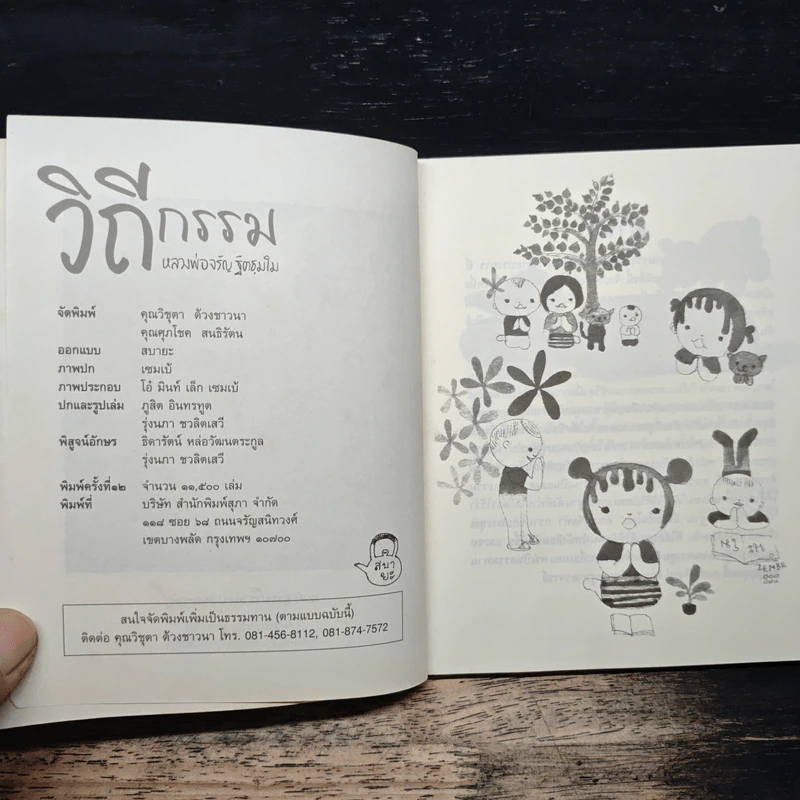 วิถีกรรม
หลวงพ่อจรัญ ฐิตธมฺโม
จัดพิมพ์ คุณวิชุตา ด้วงชาวนา
คุณศุภโชค สนธิรัตน
ออกแบบ สบายะ
ภาพปก เซมเบ้
ภาพประกอบ โอ๋ มินท์ เล็ก เซมเบ้
ปกและรูปเล่ม ภูสิต อินทรทูต
รุ่งนภา ชวลิตเสวี
พิสูจน์อักษร ธิดารัตน์ หล่อวัฒนตระกูล
รุ่งนภา ชวลิตเสวี
พิมพ์ครั้งที่๑๒ จำนวน ๑๑,๕๐๐ เล่ม
พิมพ์ที่ บริษัท สำนักพิมพ์สุภา จำกัด
๑๑๘ ซอย ๖๘ ถนนจรัญสนิทวงศ์
เขตบางพลัด กรุงเทพฯ ๑๐๗๐๐
สบา
ยะ
สนใจจัดพิมพ์เพิ่มเป็นธรรมทาน (ตามแบบฉบับนี้)
ติดต่อ คุณวิชุตา ด้วงชาวนา โทร. 081-456-8112, 081-874-7572
ZEMBE